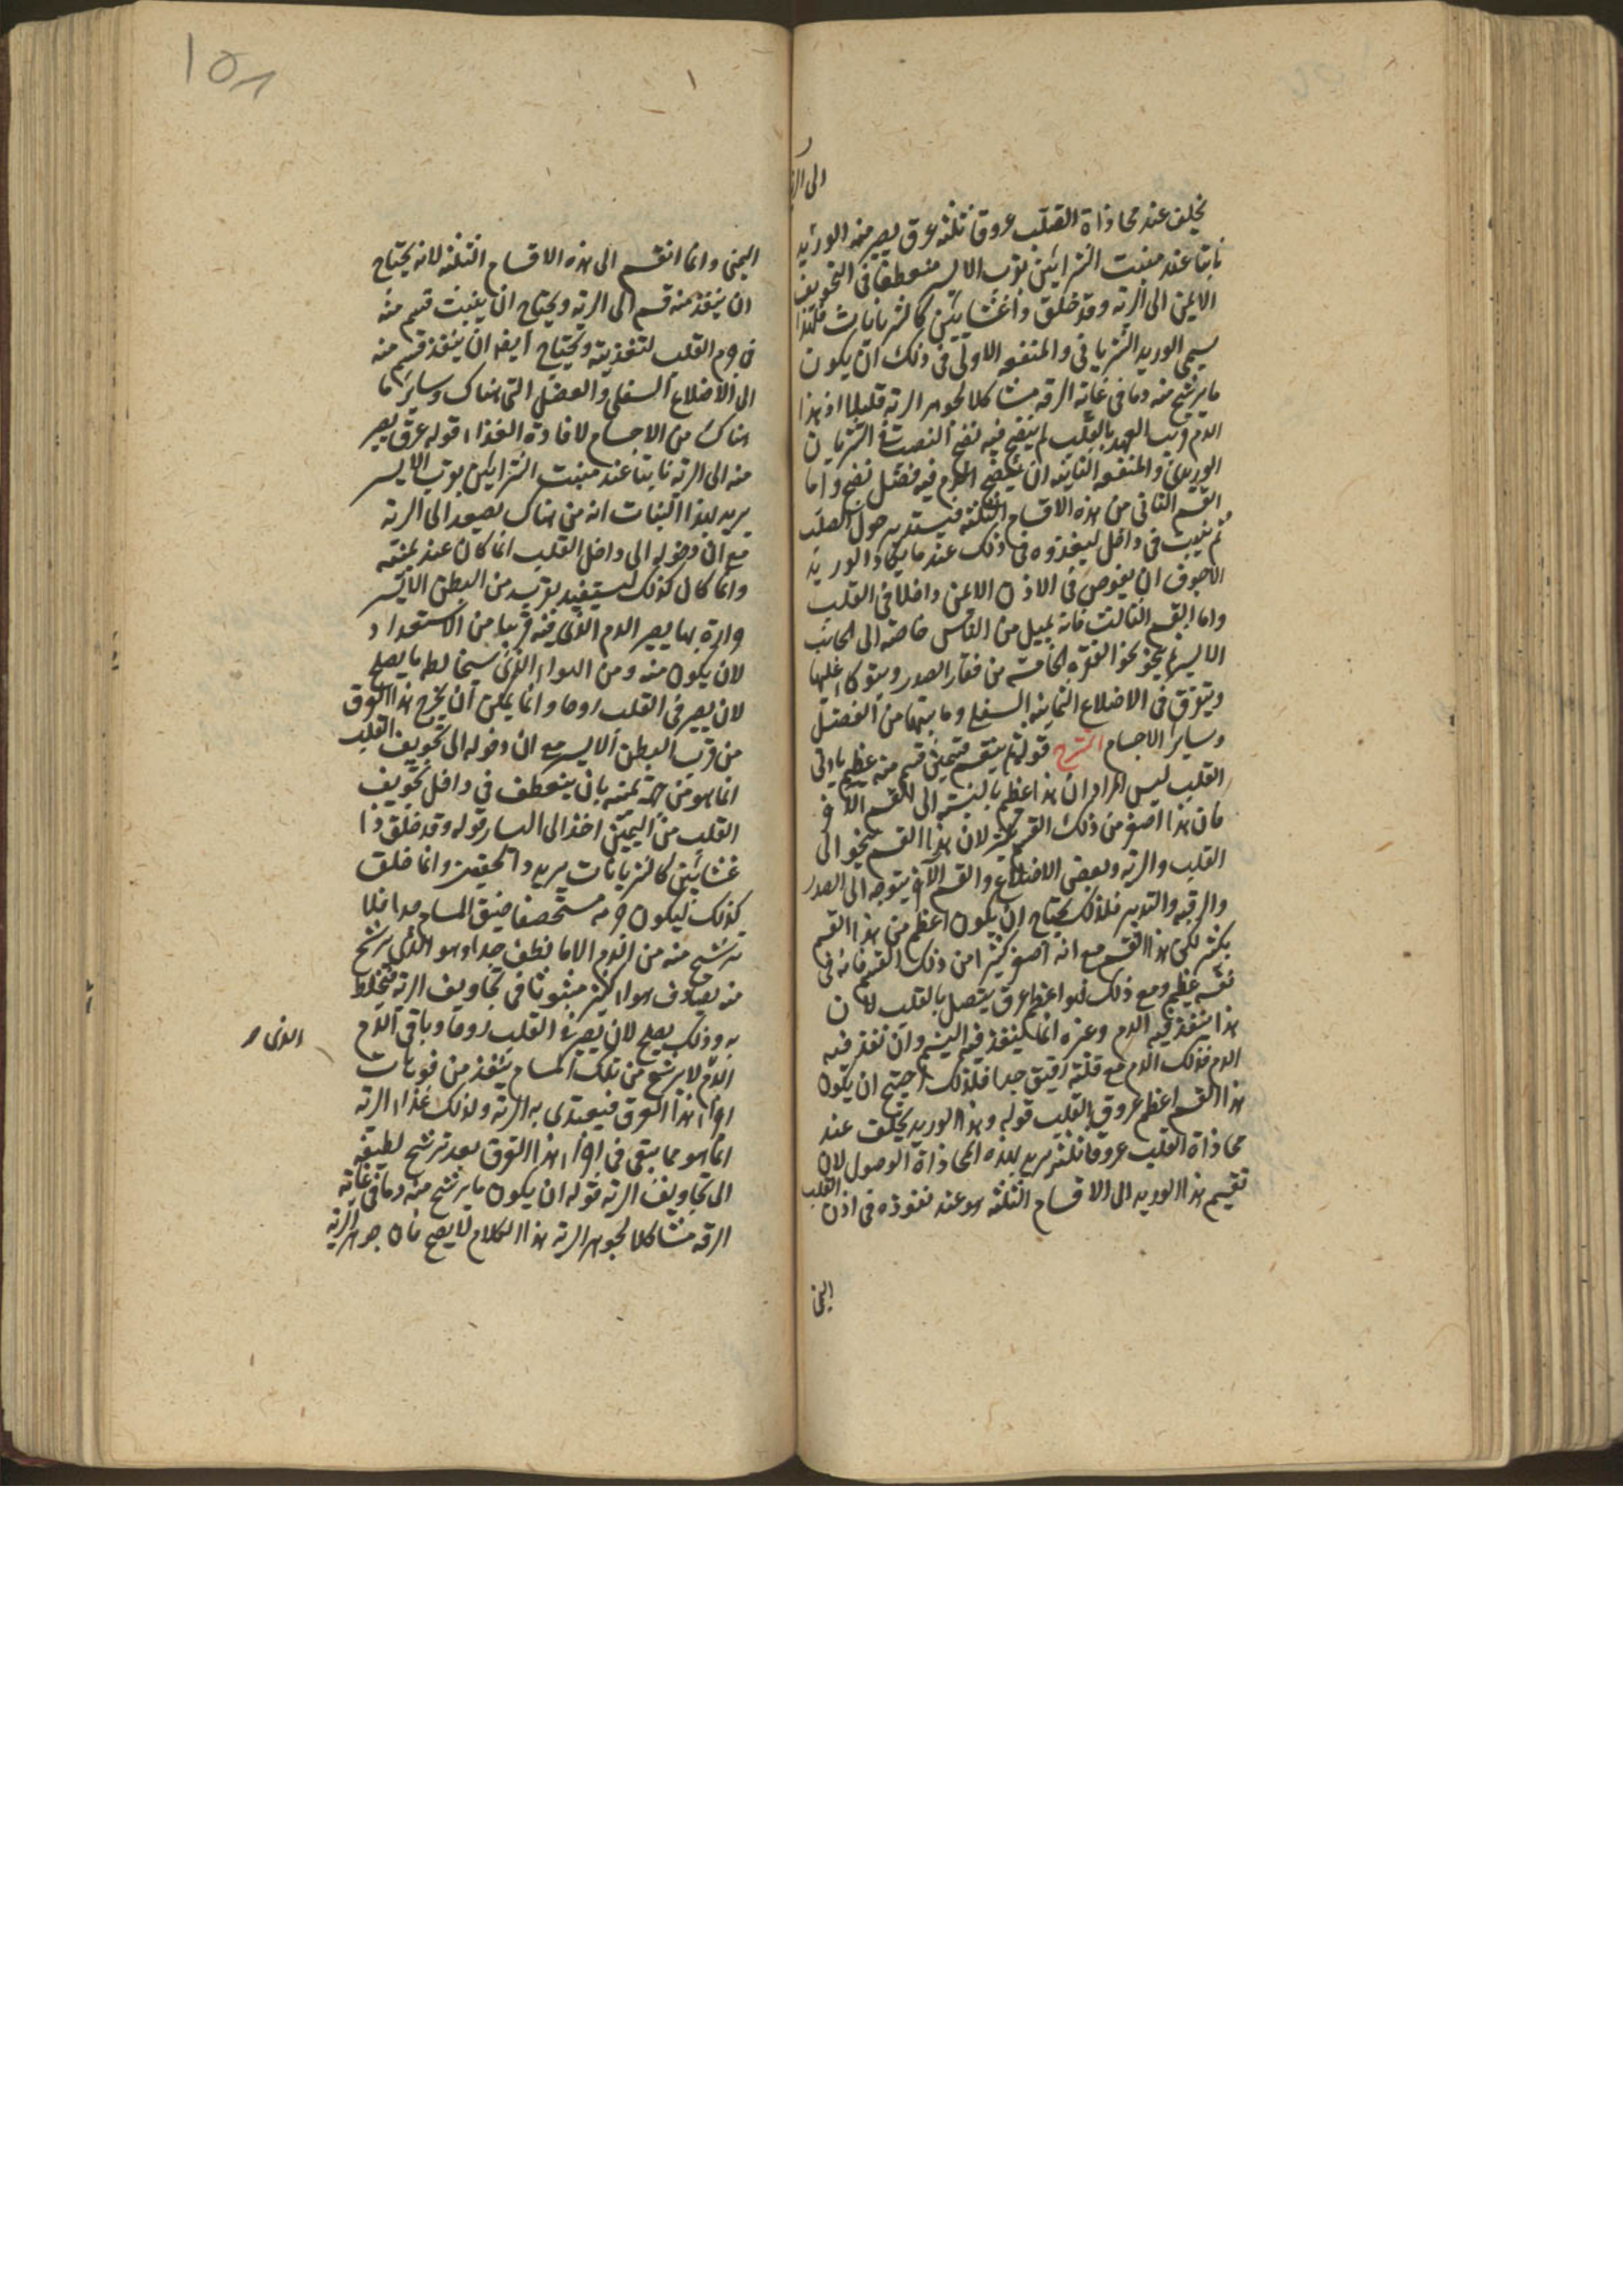 الى الر
يخلف عند محاذاة القلب عروقا ثلثة عرق يصير منه الوريد
نابتا عند منبت الشرائين بقرب الايسر منعطفا فى التجويف
الايمن الى الرئة وقد خلق ذا غشائين كالشريانات فلهذا
يسمى الوريد الشريانى والمنفعه الاولى فى ذلك ان يكون
ما يرشح منه دما فى غاية الرقة مشاكلا لجوهر الرئة قليلا اذ هذا
الدم قريب العهد بالقلب لم ينضج فيه نضج المنصب فى الشريان
الوريدى والمنفعه الثانية ان ينضج الدم فيه فضل نضج واما
القسم الثانى من هذه الاقسام الثلثة فيستدير حول القلب
ثم ينبث فى داخل ليغذوه وذلك عند ما يكاد الوريد
الاجوف ان يغوص فى الاذن الايمن داخلا فى القلب
واما القسم الثالث فانه يميل من الناس خاصة الى الجانب
الايسر ثم ينحو نحو الفقرة الخامسة من فقار الصدر ويتوكا عليها
ويتفرق فى الاضلاع الثمانية السفلى وما بينها من العضل
وسائر الاجسام الشرح قوله ثم ينقسم قسمين قسم منه عظيم ياتى
القلب ليس المراد ان هذا اعظم بالنسبة الى القسم الاخر
فان هذا اصغر من ذلك القسم لان هذا القسم ينحو الى
القلب والرئة وبعض الاضلاع والقسم الآخر يتوجه الى الصدر
والرقبه واليدين فلذلك يحتاج ان يكون اعظم من هذا القسم
بكثير لكن هذا القسم مع انه اصغر كثيرا من ذلك القسم فانه فى
نفسه عظيم ومع ذلك فهو اعظم عرق يتصل بالقلب لان
هذا ينفذ فيه الدم وغيره انما ينفذ فيه النسيم وان نفذ فيه
الدم فذلك الدم مع قلته رقيق جدا فلذلك احتيج ان يكون
هذا القسم اعظم عروق القلب قوله وهذا الوريد يخلف عند
محاذاة القلب عروقا ثلثة يريد بهذه المحاذاة الوصول لان
تقسيم هذا الوريد الى الاقسام الثلثة هو عند نفوذه فى اذن القلب
اليمنى
١٥٨
اليمنى وانما انقسم الى هذه الاقسام الثلثة لانه يحتاج
ان ينفذ منه قسم الى الرئة ويحتاج ان ينبث قسم منه
فى جرم القلب لتغذيته ويحتاج ايضا ان ينفذ قسم منه
الى الاضلاع السفلى والعضل التى هناك وسائر ما
هناك من الاجسام لافادة الغذاء قوله عرق يصير
منه الى الرئة نابتا عند منبت الشرايين بقرب الايسر
يريد بهذا النبات انه من هناك يصعد الى الرئة
مع ان دخوله الى داخل القلب انما كان عند يمنته
وانما كان كذلك ليستفيد بقربه من البطن الايسر
حرارة بها يصير الدم الذى فيه قريبا من الاستعداد
لان يكون منه ومن الهواء الذى سيخالطه ما يصلح
لان يصير فى القلب روحا وانما يمكن ان يخرج هذا العرق
من قرب البطن الايسر مع ان دخوله الى تجويف القلب
انما هو من جهة يمنته بان ينعطف فى داخل تجويف
القلب من اليمين اخذا الى اليسار قوله وقد خلق ذا
غشائين كالشريانات يريد وانما خلق
كذلك ليكون جرمه مستحصفا ضيق المسام جدا فلا
يرشح منه من الدم الا ما لطف جدا وهو الذى يرشح
منه يصادف هواء كثيرا مبثوثا فى تجاويف الرئة فيختلط
به وذلك يصلح لان يصير فى القلب روحا وباقى الدم
الذى
الدم لا يرشح من تلك المسام ينفذ من فوهات
اجزاء هذا العرق فيغتذى به الرئة ولذلك غذاء الرئة
انما هو مما يبقى فى اجزاء هذا العرق بعد ترشح لطيفه
الى تجاويف الرئة قوله ان يكون ما يرشح منه دما فى غاية
الرقة مشاكلا لجوهر الرئة هذا الكلام لا يصح فان جوهر الرئة